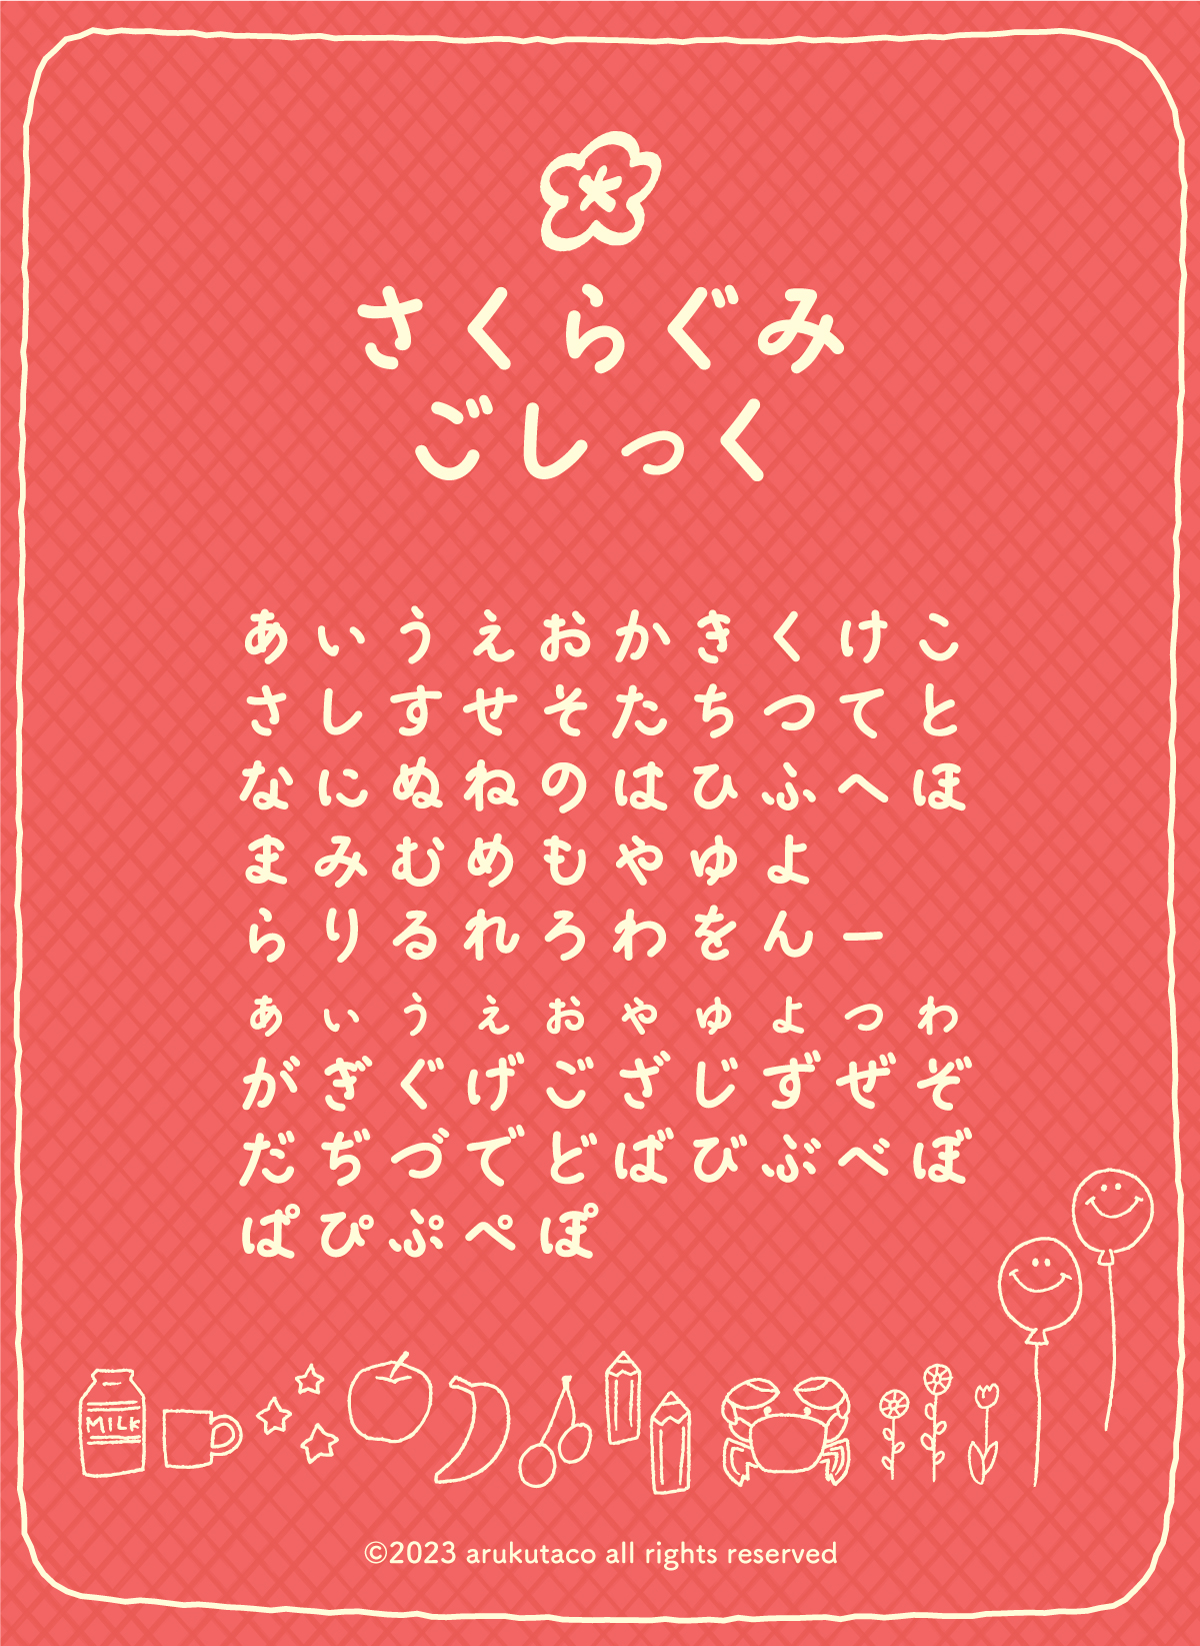 さくらぐみ
ごしっく
あいうえおかきくけこ
さしすせそたちつてと
なにぬねのはひふへほ
まみむめもやゆよ
らりるれろわをんー
ぁぃぅぇぉゃゅょっゎ
がぎぐげござじずぜぞ
だぢづでどばびぶべぼ
ぱぴぷぺぽ
MILK
©2023 arukutaco all rights reserved